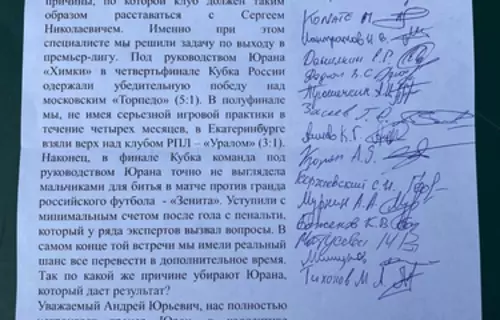 причины, по которой клуб должен таким
образом расставаться с Сергеем
Николаевичем. Именно при этом
специалисте мы решили задачу по выходу в
премьер-лигу. Под руководством Юрана
«Химки» в четвертьфинале Кубка России
одержали убедительную победу над
московским «Торпедо» (5:1). В полуфинале
мы, не имея серьезной игровой практики в
течение четырех месяцев, в Екатеринбурге
взяли верх над клубом РПЛ – «Уралом» (3:1).
Наконец, в финале Кубка команда под
руководством Юрана точно не выглядела
мальчиками для битья в матче против гранда
российского футбола - «Зенита». Уступили с
минимальным счетом после гола с пенальти,
который у ряда экспертов вызвал вопросы. В
самом конце той встречи мы имели реальный
шанс все перевести в дополнительное время.
Так по какой же причине убирают Юрана,
который дает результат?
Уважаемый Андрей Юрьевич, нас полностью
Konate M.
Камбранов
Данилкин Е.Р.
Трошечкин
Засеев Г.
К.Г.
Мурнин А.А.
Боженов К.В.
Тихонов М.А.